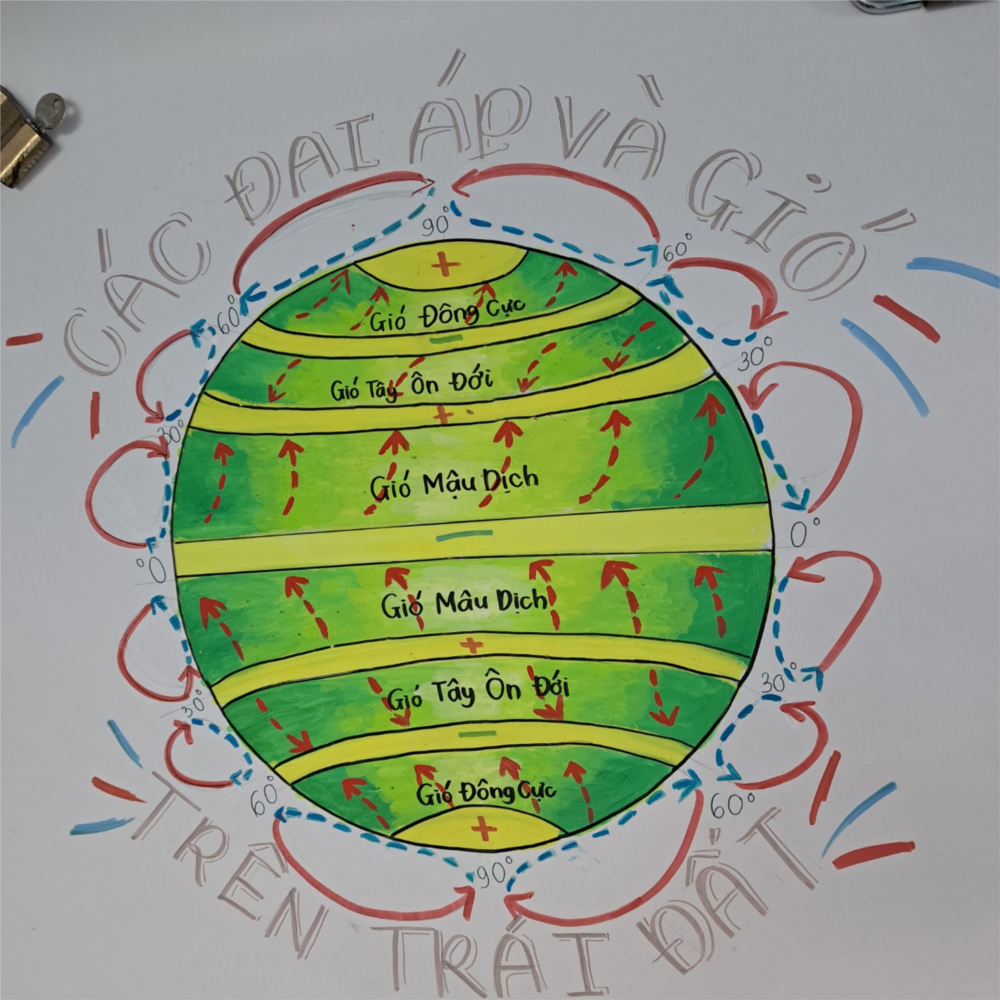 CÁC ĐAI ÁP VÀ GIÓ
90°
60°
60°
Gió Đông Cực
30°
30°
Gió Tây Ôn Đới
Gió Mậu Dịch
°0
0°
Gió Mâu Dịch
30°
30°
Gió Tây Ôn Đới
60°
60°
Gió Đông Cực
90°
TRÊN TRÁI ĐẤT